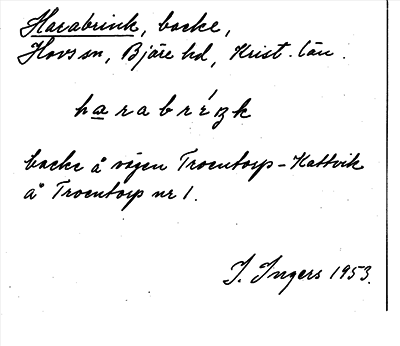 Harabrink, backe,
Hovs sn, Bjäre hd, Krist. län.
harabréŋk
backe å vägen Troentorp-Kattvik
å Troentorp nr 1.
I. Ingers 1953.